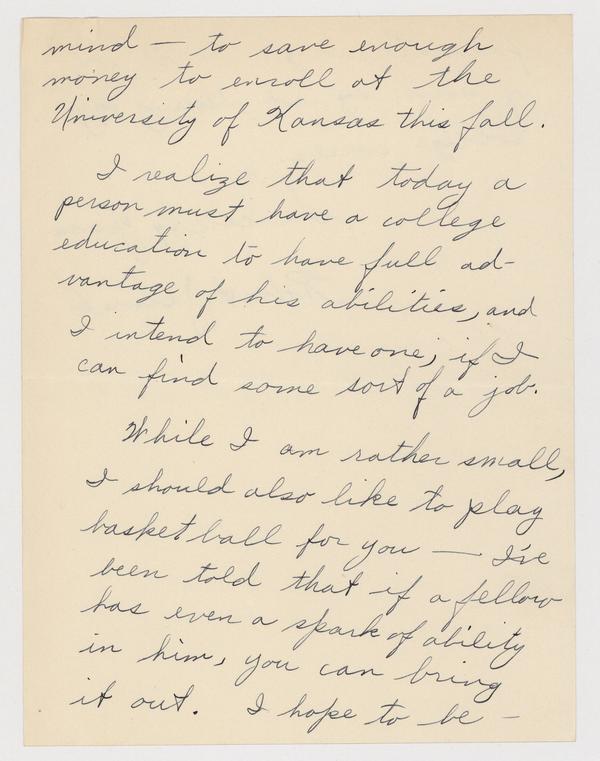 mind — to save enough
money to enroll at the
University of Kansas this fall.
I realize that today a
person must have a college
education to have full ad-
vantage of his abilities, and
I intend to have one, if I
can find some sort of a job.
While I am rather small,
I should also like to play
basketball for you — I've
been told that if a fellow
has even a spark of ability
in him, you can bring
it out. I hope to be —